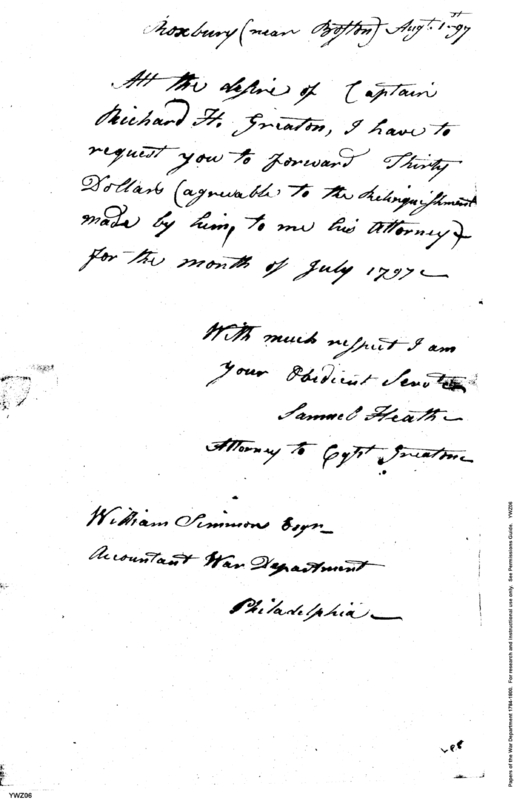 Roxbury (near Boston) Augt. 1st 97
At the desire of Captain
Richard H. Greaton, I have to
request you to forward Thirty
Dollars (agreeable to the Relinquishment
made by him, to me his Attorney)
for the month of July 1797
With much respect I am
your Obedient Servt
Samuel Heath
Attorney to Capt Greaton
William Simmon Esqr
Accountant War Department
Philadelphia
YWZ06
Papers of the War Department 1784-1800. For research and instructional use only. See Permissions Guide. YWZ06